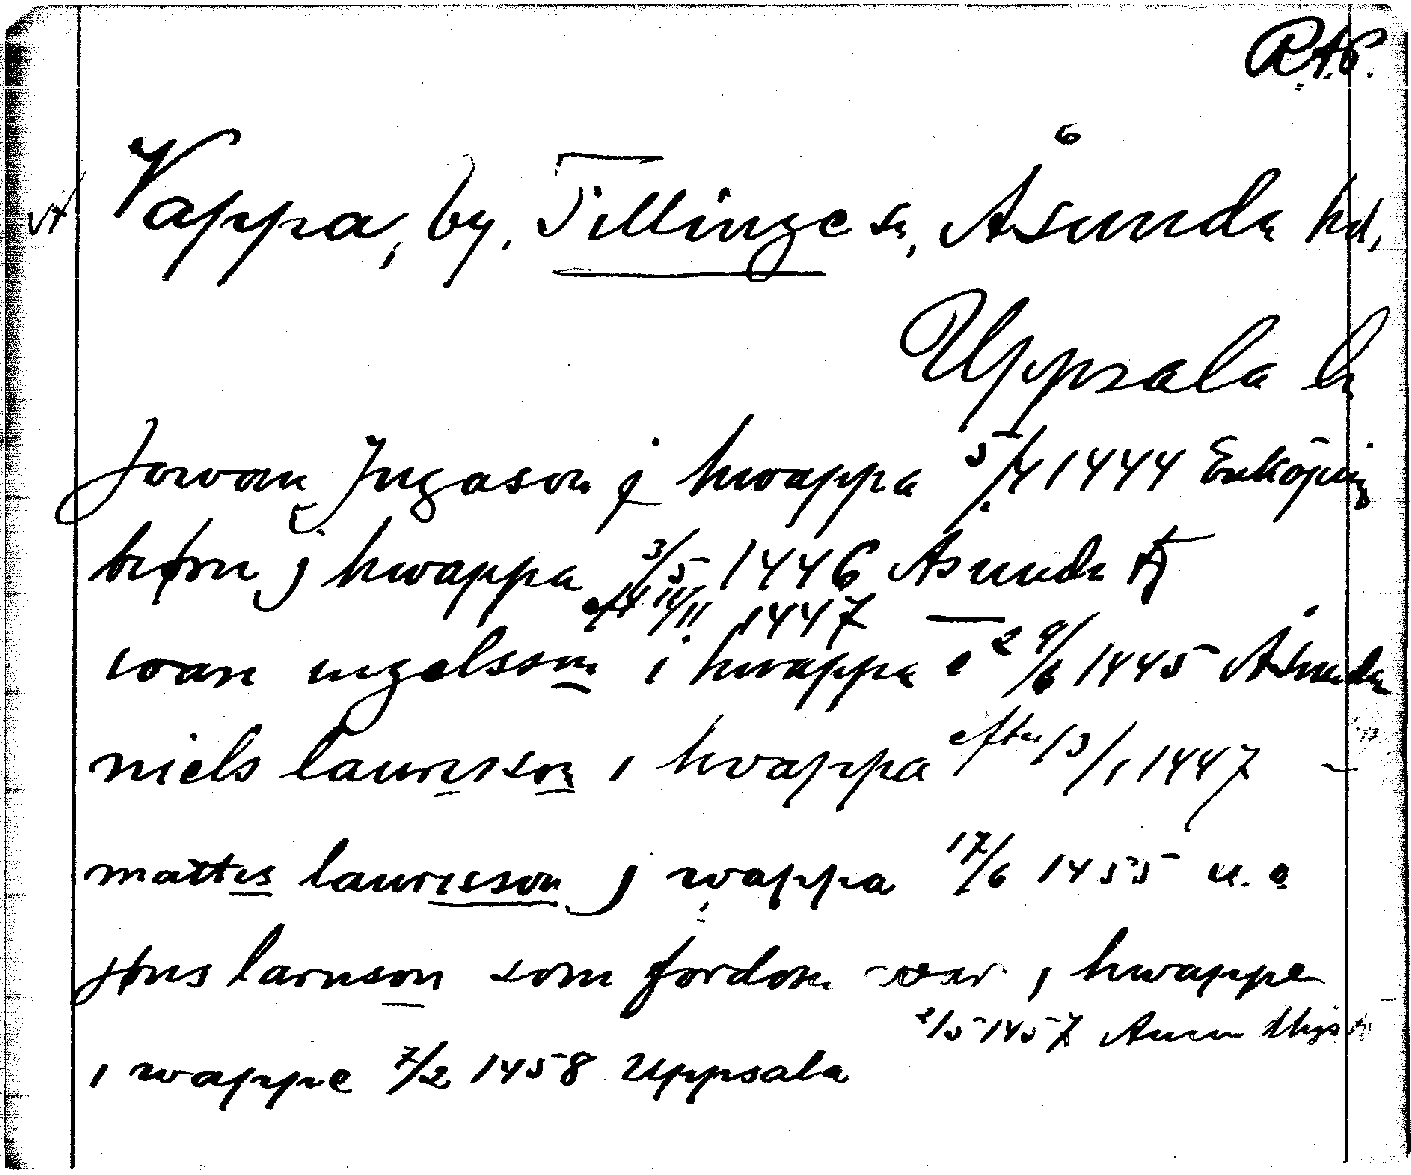 RAP.
6
Vappa, by. Tillinge sn, Åsunda hd,
Uppsala ln
Jowan Jngason j hwappa 5/4 1444 Enköping
biørn j hwappa 3/5 1446 Åsunda
eft 14/11 1447 —
ioan ingelsson i hwappa 29/6 1445 Åsunda
niels laurisson i hvappa efter 13/1 1447 —
mattis laurisson j wappa 17/6 1455 u. o
jøns larnson som fordom var j hwappe
2/5 1457
i wappe 7/2 1458 Uppsala